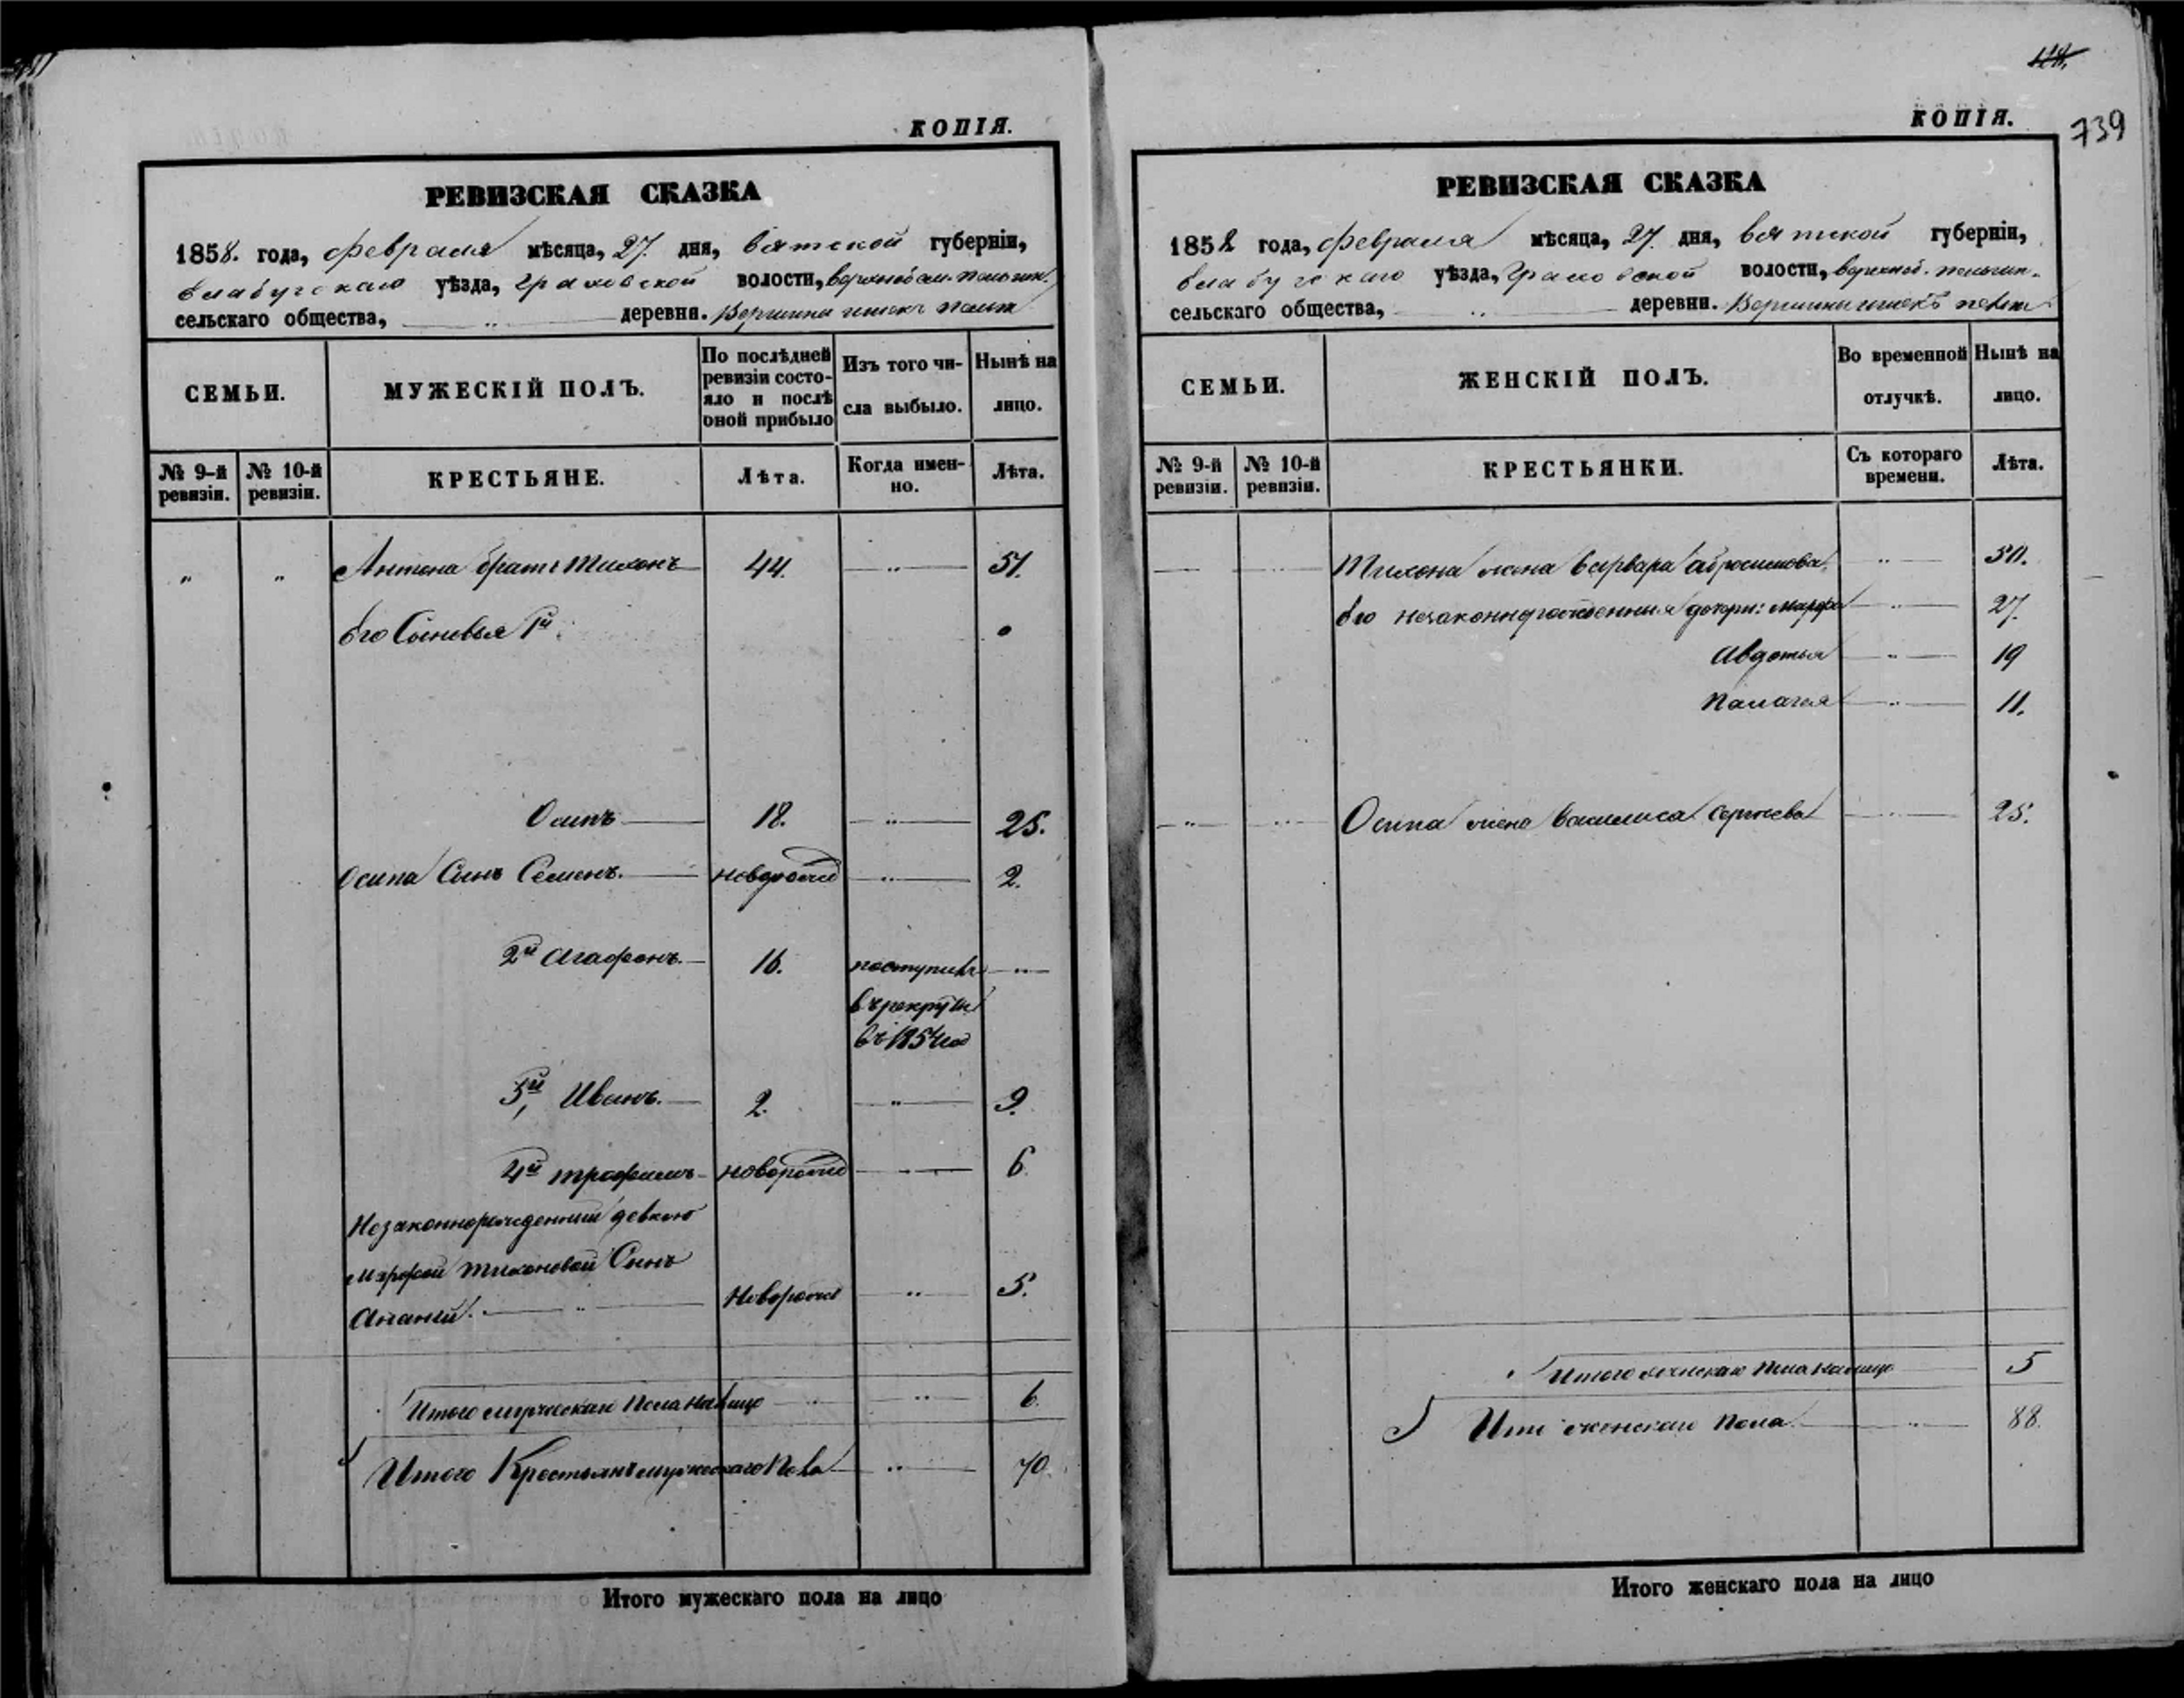 КОПІЯ.
РЕВИЗСКАЯ СКАЗКА
1858. года, февраля мѣсяца, 27. дня, вятской губерніи,
елабугскаго уѣзда, граховской волости,
сельскаго общества, „ деревня. Вершины
СЕМЬИ.
МУЖЕСКІЙ ПОЛЪ.
По послѣдней ревизіи состо-
яло и послѣ
оной прибыло
Изъ того чи-
сла выбыло.
Нынѣ на
лицо.
№ 9-й ревизіи.
№ 10-й ревизіи.
КРЕСТЬЯНЕ.
Лѣта.
Когда имен-
но.
Лѣта.
„ „ Антона братъ Тихонъ 44. „ 51.
его Сыновья 1й
Осипъ 18. „ 25.
Осипа Сынъ Семенъ. новорожд „ 2.
2й Агафонъ. 16. поступилъ „
въ рекруты
въ 1854 год
3й, Иванъ. 2. „ 9.
4й Трофимъ новорожд „ 6
Незаконнорожденный девкою
Марфой Тихоновой Сынъ
Ананій. „ Новорожд „ 5.
Итого мужескаго Пола налицо „ 6.
Итого Крестьянъ мужескаго Пола „ 70.
Итого мужескаго пола на лицо
КОПІЯ.
739
РЕВИЗСКАЯ СКАЗКА
1858 года, февраля мѣсяца, 27. дня, вятской губерніи,
елабугскаго уѣзда, Граховской волости,
сельскаго общества, „ деревни. Вершины
СЕМЬИ.
ЖЕНСКІЙ ПОЛЪ.
Во временной
отлучкѣ.
Нынѣ на
лицо.
№ 9-й ревизіи.
№ 10-й ревизіи.
КРЕСТЬЯНКИ.
Съ котораго
времени.
Лѣта.
Тихона жена Варвара Абросимова „ 50.
его незаконнорожденныя дочери: Марфа „ 27.
Авдотья „ 19
Палагея „ 11.
„ „ Осипа жена Василиса Сергѣева „ 25.
Итого женскаго Пола налицо 5
женскаго Пола. „ 88.
Итого женскаго пола на лицо